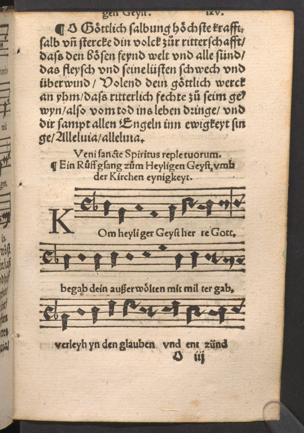 gen Geyst. lxv.
¶ O Göttlich salbung höchste krafft,
salb vñ stercke din volck zůr ritterschafft/
dass den bösen feynd welt vnd alle sünd/
das fleysch vnd seine lüsten schwech vnd
überwind/ Volend dein göttlich werck
an yhm/ dass ritterlich fechte zů seim ge
wyn/ also vom tod ins leben dringe/ vnd
dir sampt allen Engeln inn ewigkeyt sin
ge/ Alleluia/ alleluia.
Veni sancte Spiritus reple tuorum.
¶ Ein Růff gsang zům Heyligen Geyst, vmb
der Kirchen eynigkeyt.
K
Om heyli ger Geyst her re Gott,
begab dein außerwölten mit mil ter gab,
verleyh yn den glauben vnd ent zünd
O iij